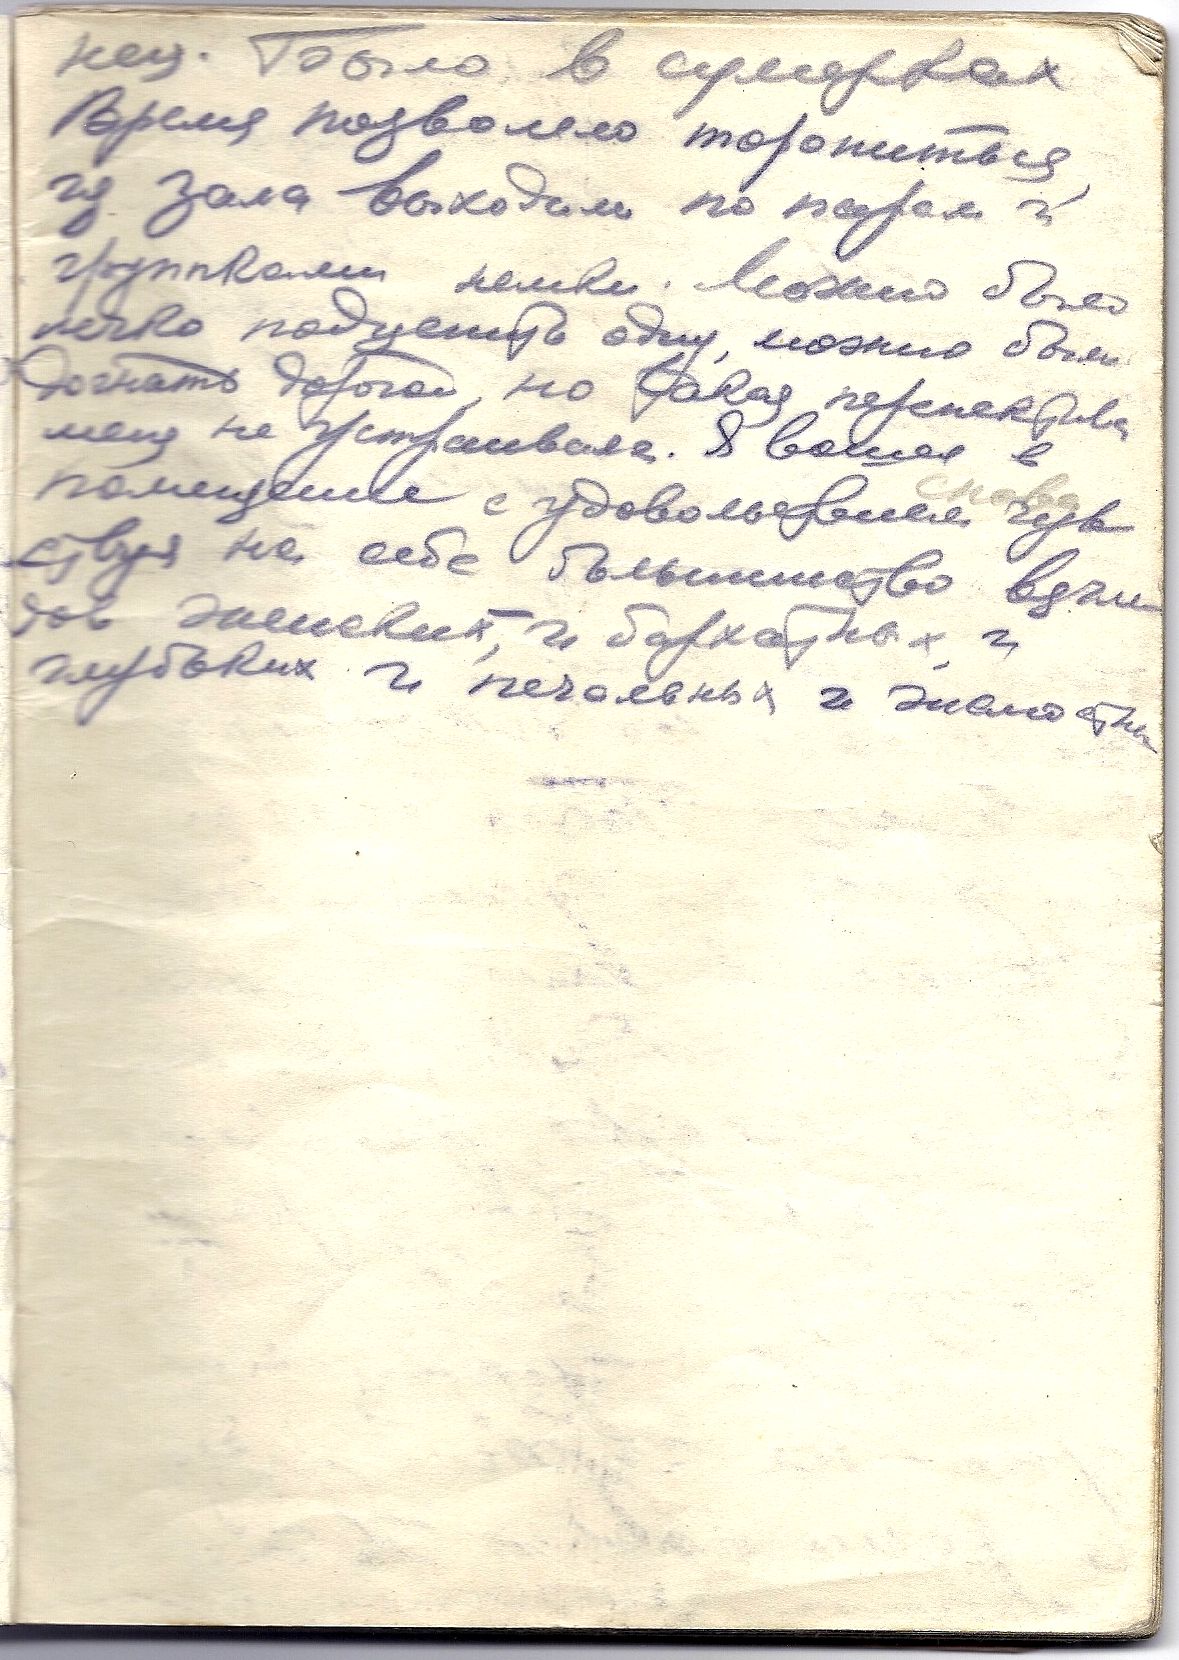 нец. Было в сумерках
Время позволяло торопиться,
из зала выходили по парам и
группками немки. Можно было
легко подцепить одну, можно было
догнать дорогой, но такая перспектива
меня не устраивала. Я вошел в
снова
помещение с удовольствием чув
ствуя на себе большинство взгля
дов женских, и бархатных, и
глубоких и печальных и жалостны